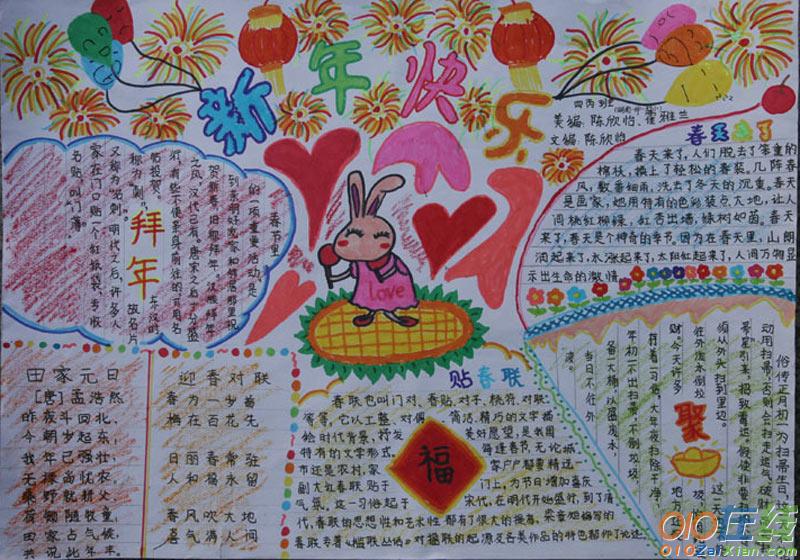 新年快乐
四丙班
美编:陈欣怡、崔雅兰
文编:陈欣怡
春天来了
春天来了,人们脱去了笨重的
棉袄,换上了轻松的春装。几阵春
风,数番细雨,洗去了冬天的沉重。春天
是画家,她用特有的色彩装点大地,让人
间桃红柳绿,红杏出墙,绿树如茵。春天
来了,春天是个神奇的季节。因为在春天里,山朗
润起来了,水涨起来了,太阳红起来了,人间万物显
示出生命的激情。
拜年
春节里
的一项重要活动,是
到亲朋好友家和邻居那里祝
贺新春,旧称拜年。汉族拜年
之风,汉代已有。唐宋之后十分盛
行,有些不便亲身前往的,可用名
帖投贺。东汉时
称为“刺”,故名片
又称“名刺”。明代之后,许多人
家在门口贴一个红纸袋,专收
名帖,叫“门簿”。
love
田家元日
[唐]孟浩然
昨夜斗回北,
今朝岁起东;
我年已强壮,
无禄尚忧农。
桑野就耕父,
荷锄随牧童;
田家占气候,
共说此年丰。
迎春对联
春为一岁首
梅在百花先
日丽春常驻
人和福永留
春风吹大地
喜气满人间
贴春联
春联也叫门对、春贴、对子、桃符、对联
等等,它以工整、对偶、简洁、精巧的文字描
绘时代背景,抒发美好愿望,是我国
特有的文学形式。每逢春节,无论城
市还是农村,家家户户都要精选一
副大红春联贴于门上,为节日增加喜庆
气氛。这一习俗起于宋代,在明代开始盛行,到了清
代,春联的思想性和艺术性都有了很大的提高,梁章矩编写的
春联专著《槛联丛话》对楹联的起源及各类作品的特色都作了论述。
福
俗传正月初一为扫帚生日,
动用扫帚,否则会扫走运气、破财
须从外头扫到里边。
这一天
年初一不出扫帚、不倒垃圾
备一大桶,以盛废水
当日不往外
聚
010在线
010ZaiXian.com